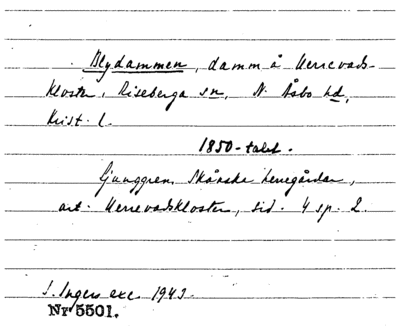 Blydammen, damm å Herrevads-
kloster, Riseberga sn, N. Åsbo hd,
Krist. l.
1850-talet.
Ljunggren, Skånska herregårdar,
art. Herrevadskloster, sid. 4 sp. 2.
I. Ingers exc. 1943.
Nr 5501.